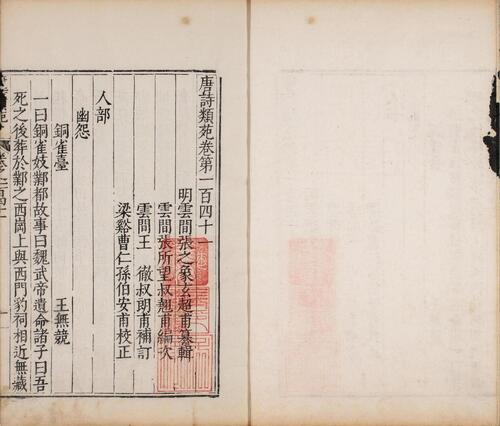 唐詩類苑卷第一百四十一
明雲間張之象玄超甫纂輯
雲間張所望叔翹甫編次
雲間王　徹叔朗甫補訂
梁谿曹仁孫伯安甫校正
人部
幽怨
銅雀臺　王無競
一曰銅雀妓鄴都故事曰魏武帝遺命諸子曰吾
死之後葬於鄴之西崗上與西門豹祠相近無藏